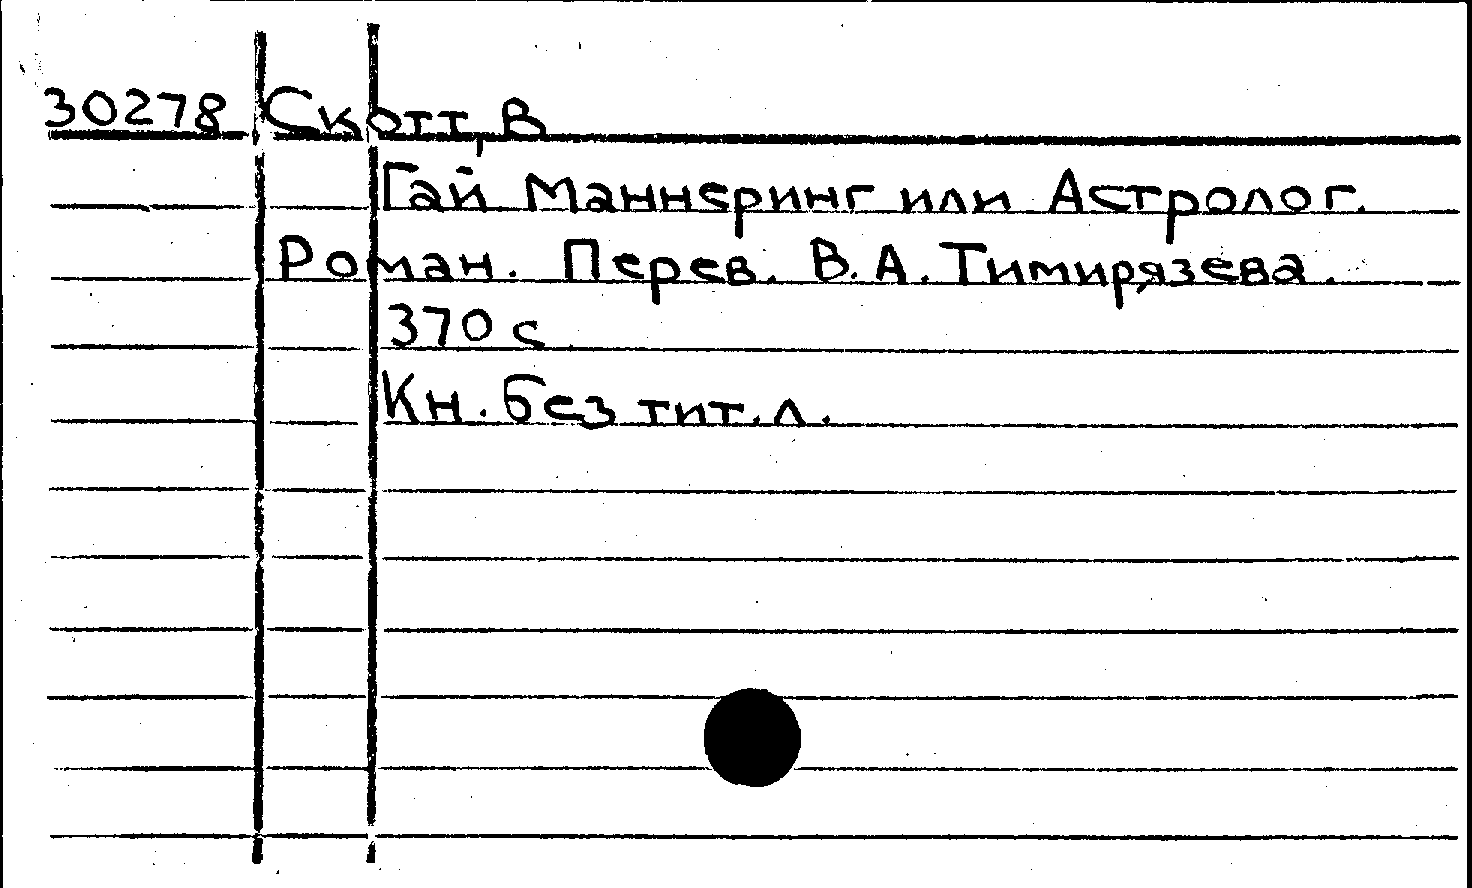 30278 Скотт, В
Гай Маннеринг или Астролог.
Роман. Перев. В.А. Тимирязева.
370 с.
Кн. без тит. л.